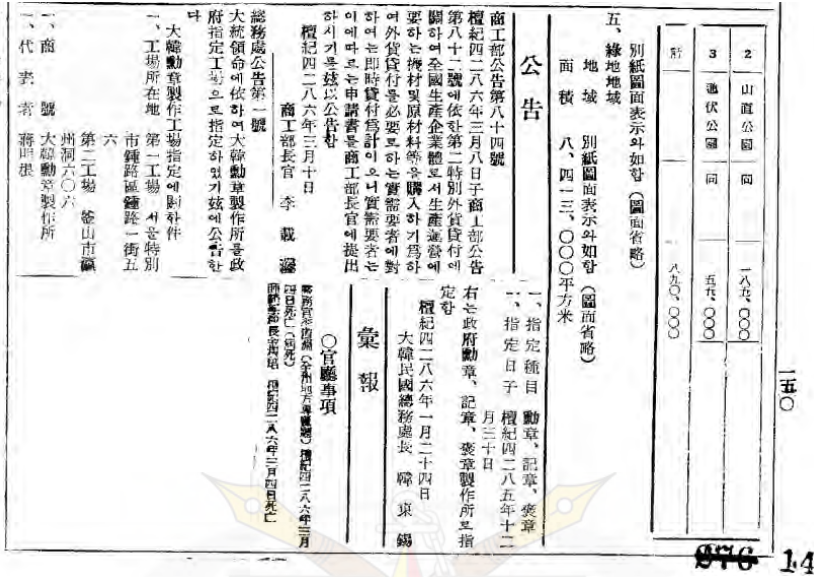 一五〇
2 山直公園 同 一八九、〇〇〇
3 龜伏公園 同 五九、〇〇〇
計 八九〇、〇〇〇
別紙圖面表示와如함 (圖面省略)
五、綠地地域
地域 別紙圖面表示와如함 (圖面省略)
面積 八、四一三、〇〇〇平方米
公告
商工部公告第八十四號
檀紀四二八六年三月八日子商工部公告
第八十二號에依한第二特別外貨貸付에
關하여全國生產企業體로서生產運營에
要하는機材및原材料等을購入하기爲하
여外貨貸付를必要로하는實需要者에對
하여는即時貸付爲計이오니實需要者는
이에따르는申請書를商工部長官에提出
하시기를玆以公告함
檀紀四二八六年三月十日
商工部長官 李載
總務處公告第一號
大統領命에依하여大韓勳章製作所를政
府指定工場으로指定하였기玆에公告한
다
大韓勳章製作工場指定에關한件
一、工場所在地 第一工場 서울特別
市鍾路區鍾路一街五
六
第二工場 釜山市瀛
州洞六〇六
一、商號 大韓勳章製作所
一、代表者 蔣明根
一、指定種目 勳章、記章、褒章
一、指定日子 檀紀四二八五年十二
月三十日
右는政府勳章、記章、褒章製作所로指
定함
檀紀四二八六年一月二十四日
大韓民國總務處長 韓東錫
彙報
〇官廳事項
四日死亡
檀紀四二八六年二月四日死亡
876 14